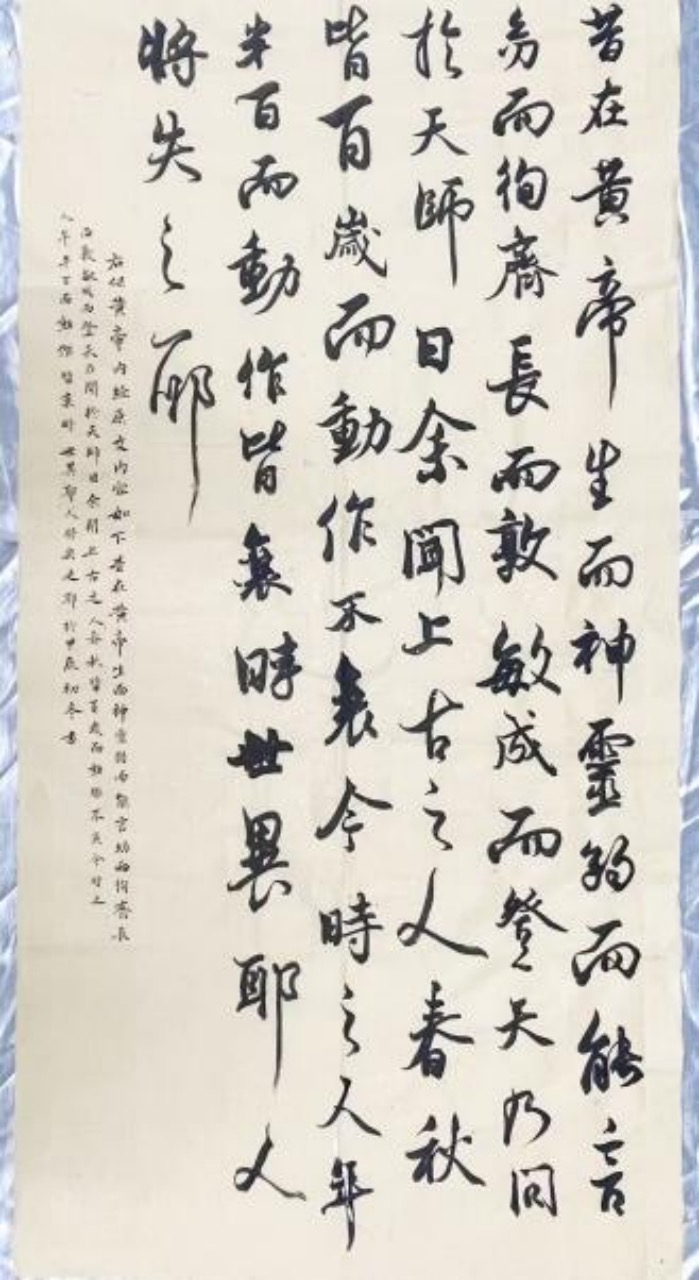 昔在黃帝生而神靈弱而能言
幼而徇齊長而敦敏成而登天乃問
於天師曰余聞上古之人春秋
皆百歲而動作不衰今時之人年
半百而動作皆衰時世異耶人
將失之耶
右錄黃帝內經原文內容如下昔在黃帝生而神靈弱而能言幼而徇齊長
而敦敏成而登天乃問於天師曰余聞上古之人春秋皆百歲而動作不衰今時之
人年半百而動作皆衰時世異耶人將失之耶於甲辰初冬書